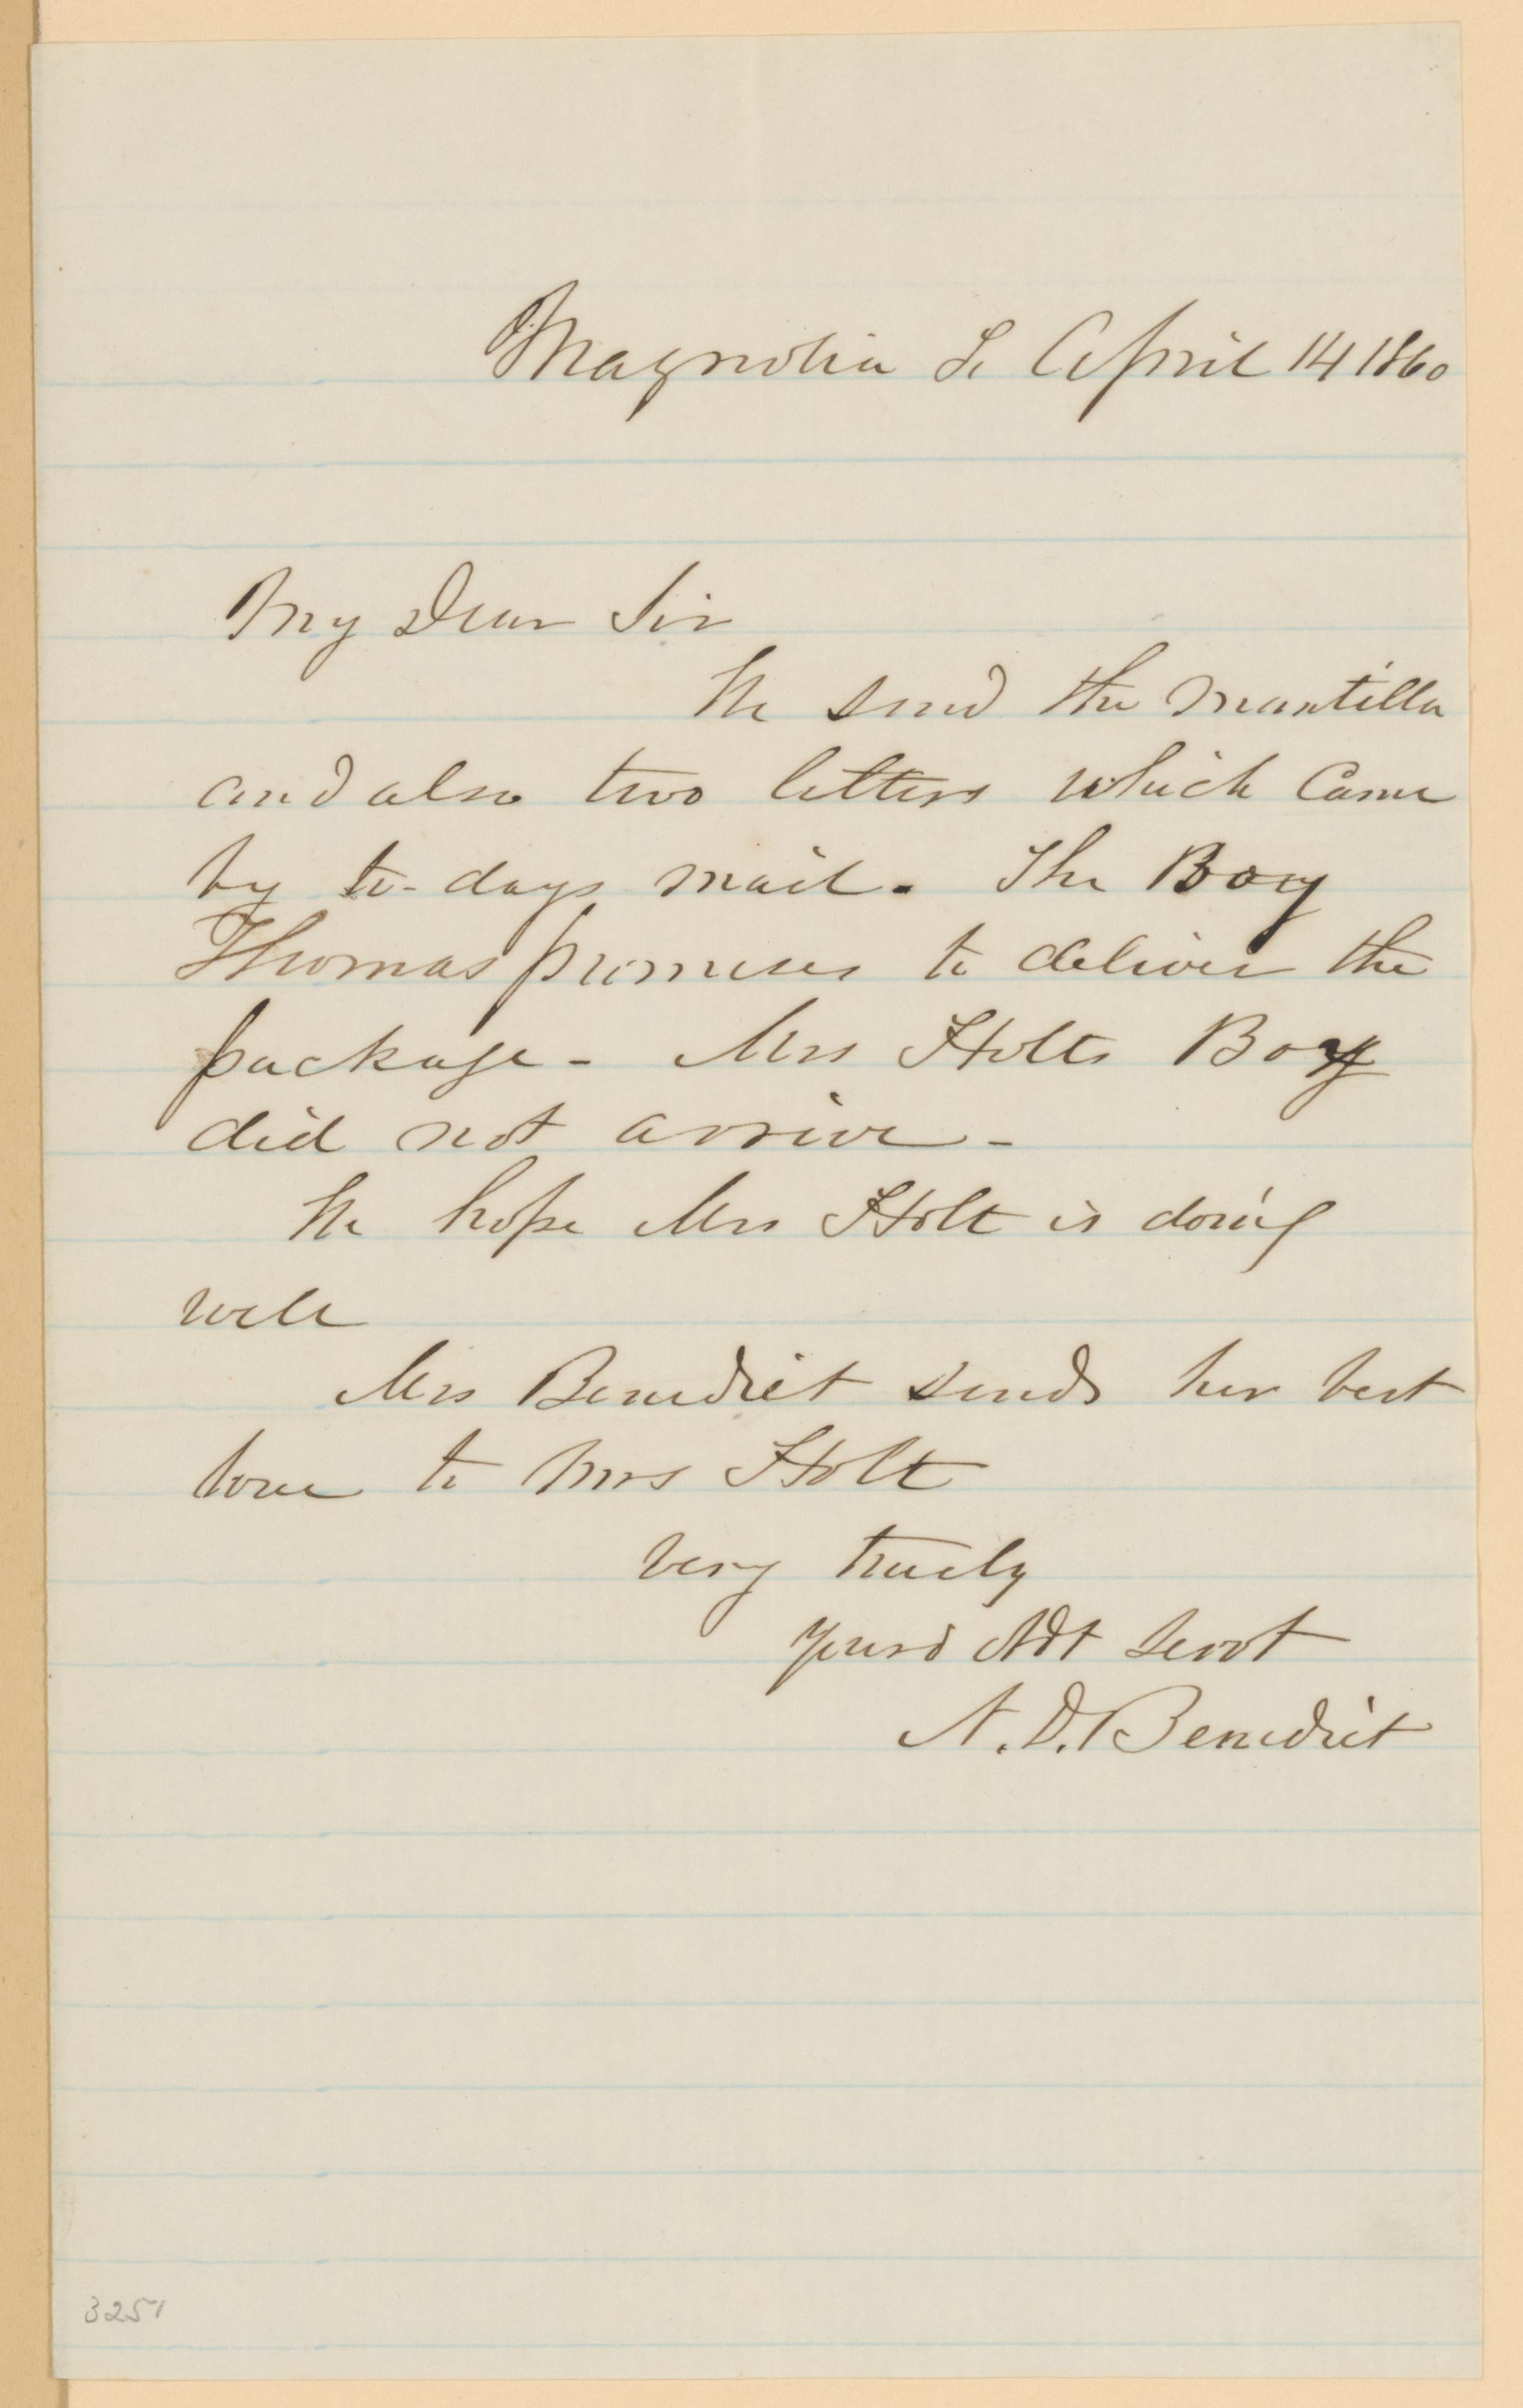 Magnolia La April 14 1860
My Dear Sir
We send the Mantilla
and also two letters which Came
by to-days mail. The Boy
Thomas promises to deliver the
package - Mrs Holts Boy
did not arrive -
We hope Mrs Holt is doing
well
Mrs Benedict sends her best
love to Mrs Holt
Very truely
Yours Obt Servt
N. D. Benedict
3251